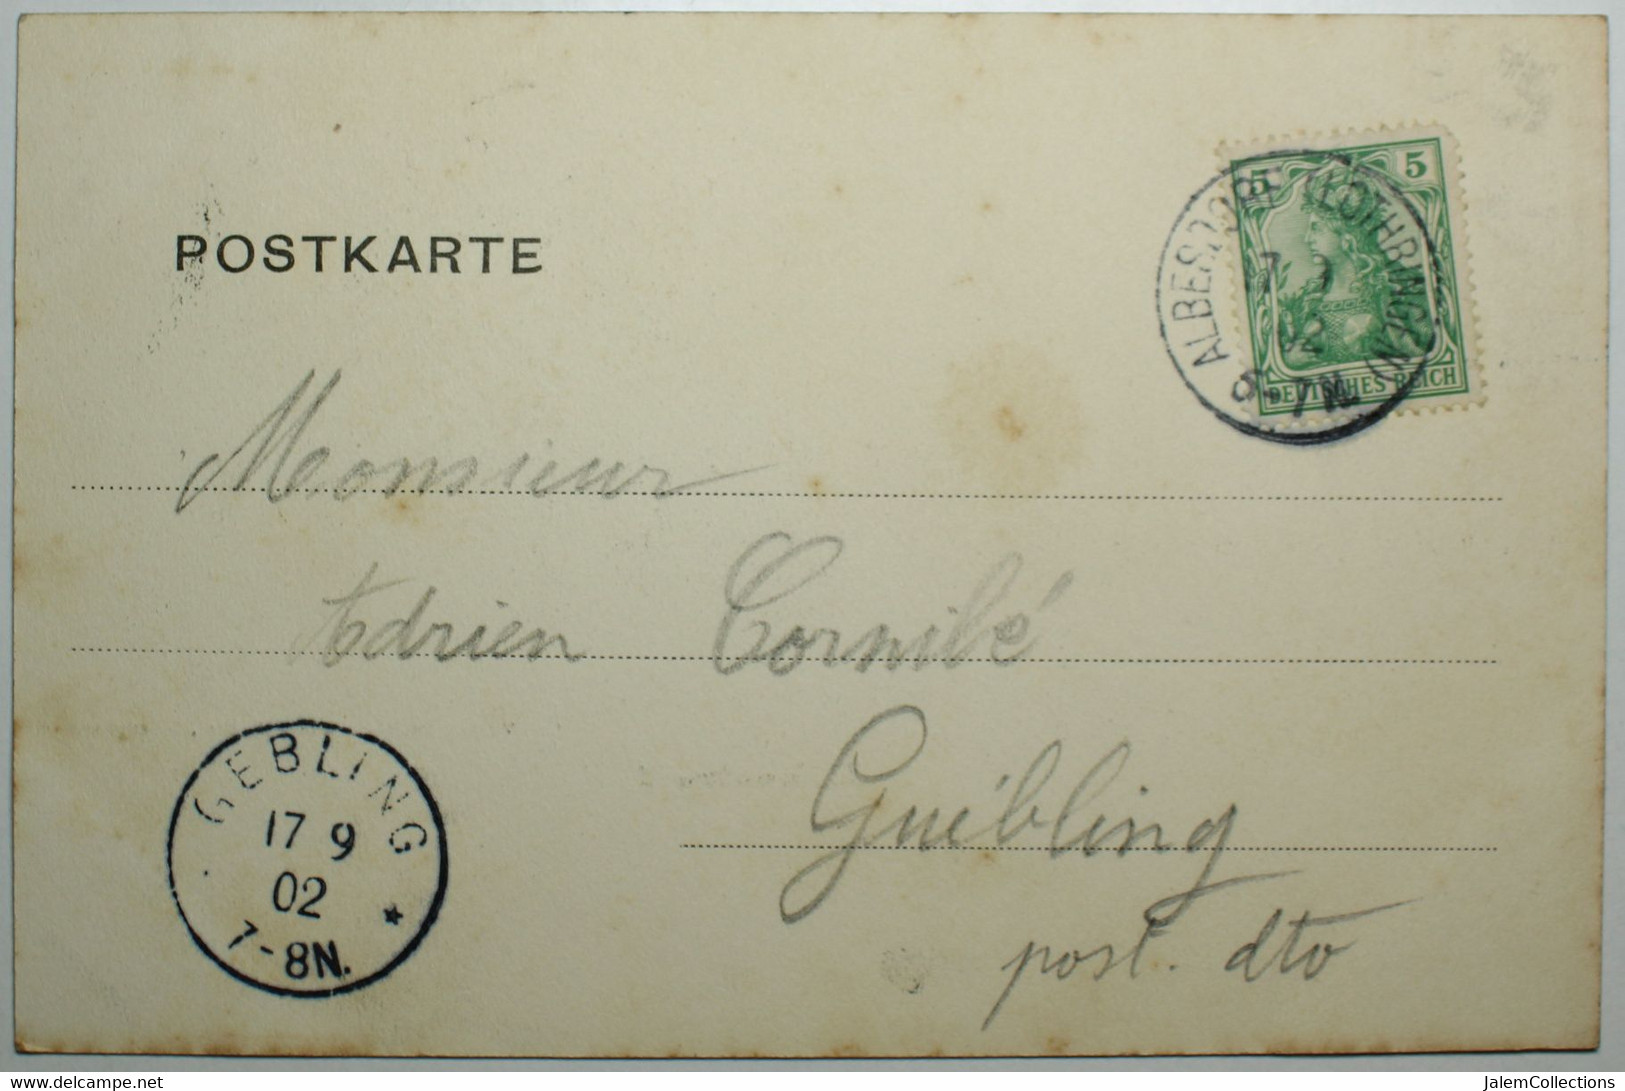 POSTKARTE
5 5
DEUTSCHES REICH
ALBESDORF (LOTHRINGEN)
17 9
02
5-7N
Monsieur
Adrien Cornibé
Guébling
post. dto
GEBLING
17 9
02
7-8N.
www.delcampe.net
JalemCollections